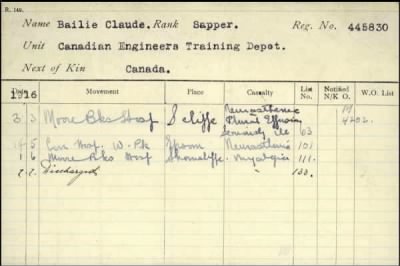 R. 149.
Name Bailie Claude. Rank Sapper. Reg. No. 445830
Unit Canadian Engineers Training Depot.
Next of Kin Canada.
Date Movement Place Casualty List No. Notified N/K O. W.O. List
1916
3 3 Moore Bks Hosp S'cliffe Neurasthenia
Plural Effusion 4202.
Seriously Ill 63
5 Con Hosp. W. Pk Epsom Neurasthenia 101
1 6 Moore Bks Hosp Shorncliffe Myalgia 111.
Discharged " 133.